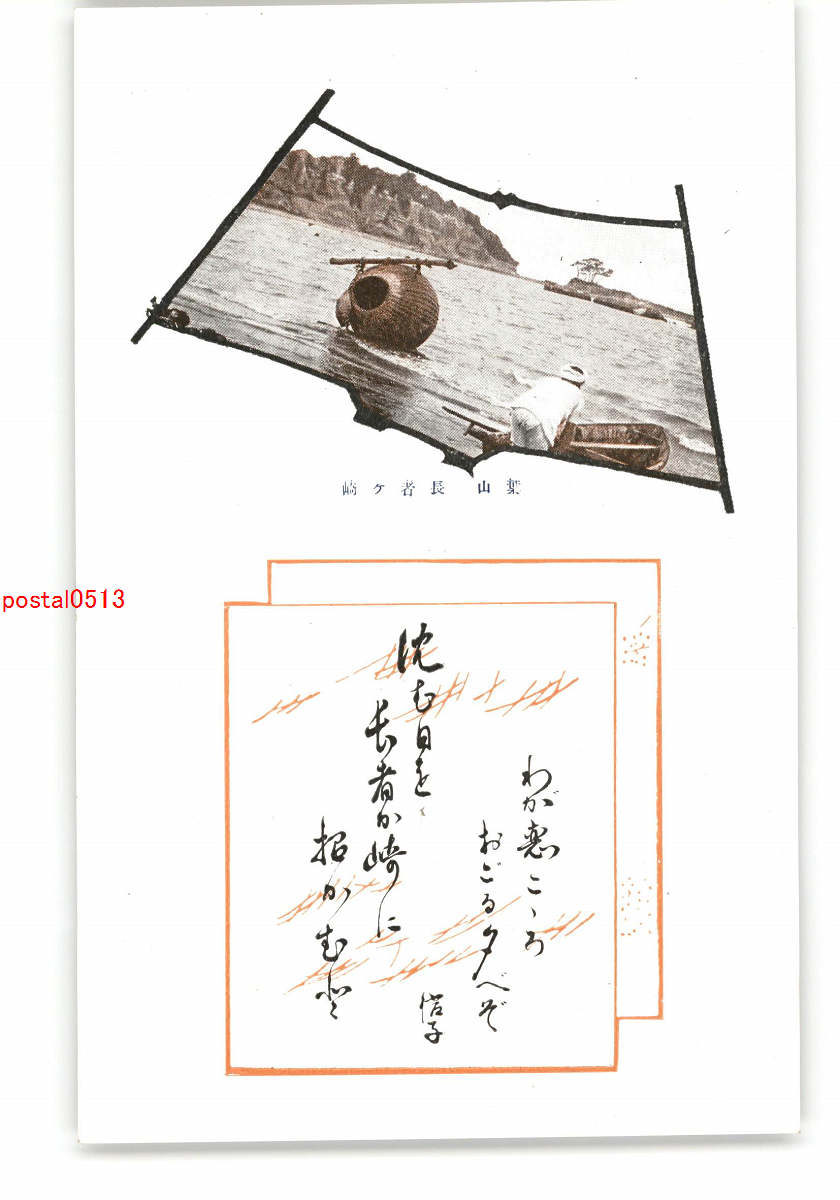 葉山 長者ケ崎
postal0513
沈む日を
長者か崎に
招かむと
わが恋こゝろ
おごる夕べぞ